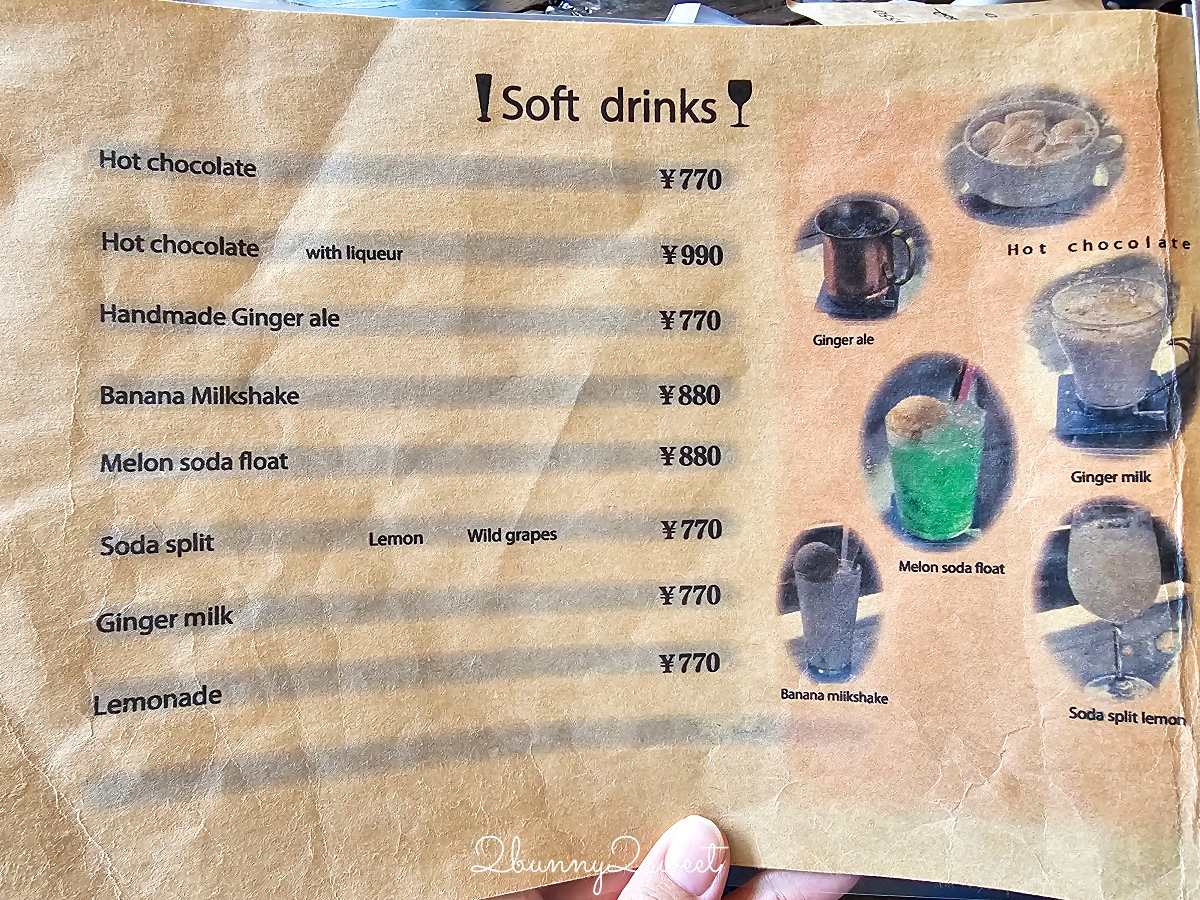 Soft drinks
Hot chocolate ¥770
Hot chocolate with liqueur ¥990
Handmade Ginger ale ¥770
Banana Milkshake ¥880
Melon soda float ¥880
Soda split Lemon Wild grapes ¥770
Ginger milk ¥770
Lemonade ¥770
Hot chocolate
Ginger ale
Ginger milk
Melon soda float
Banana miikshake
Soda split lemon
2bunny2sweet